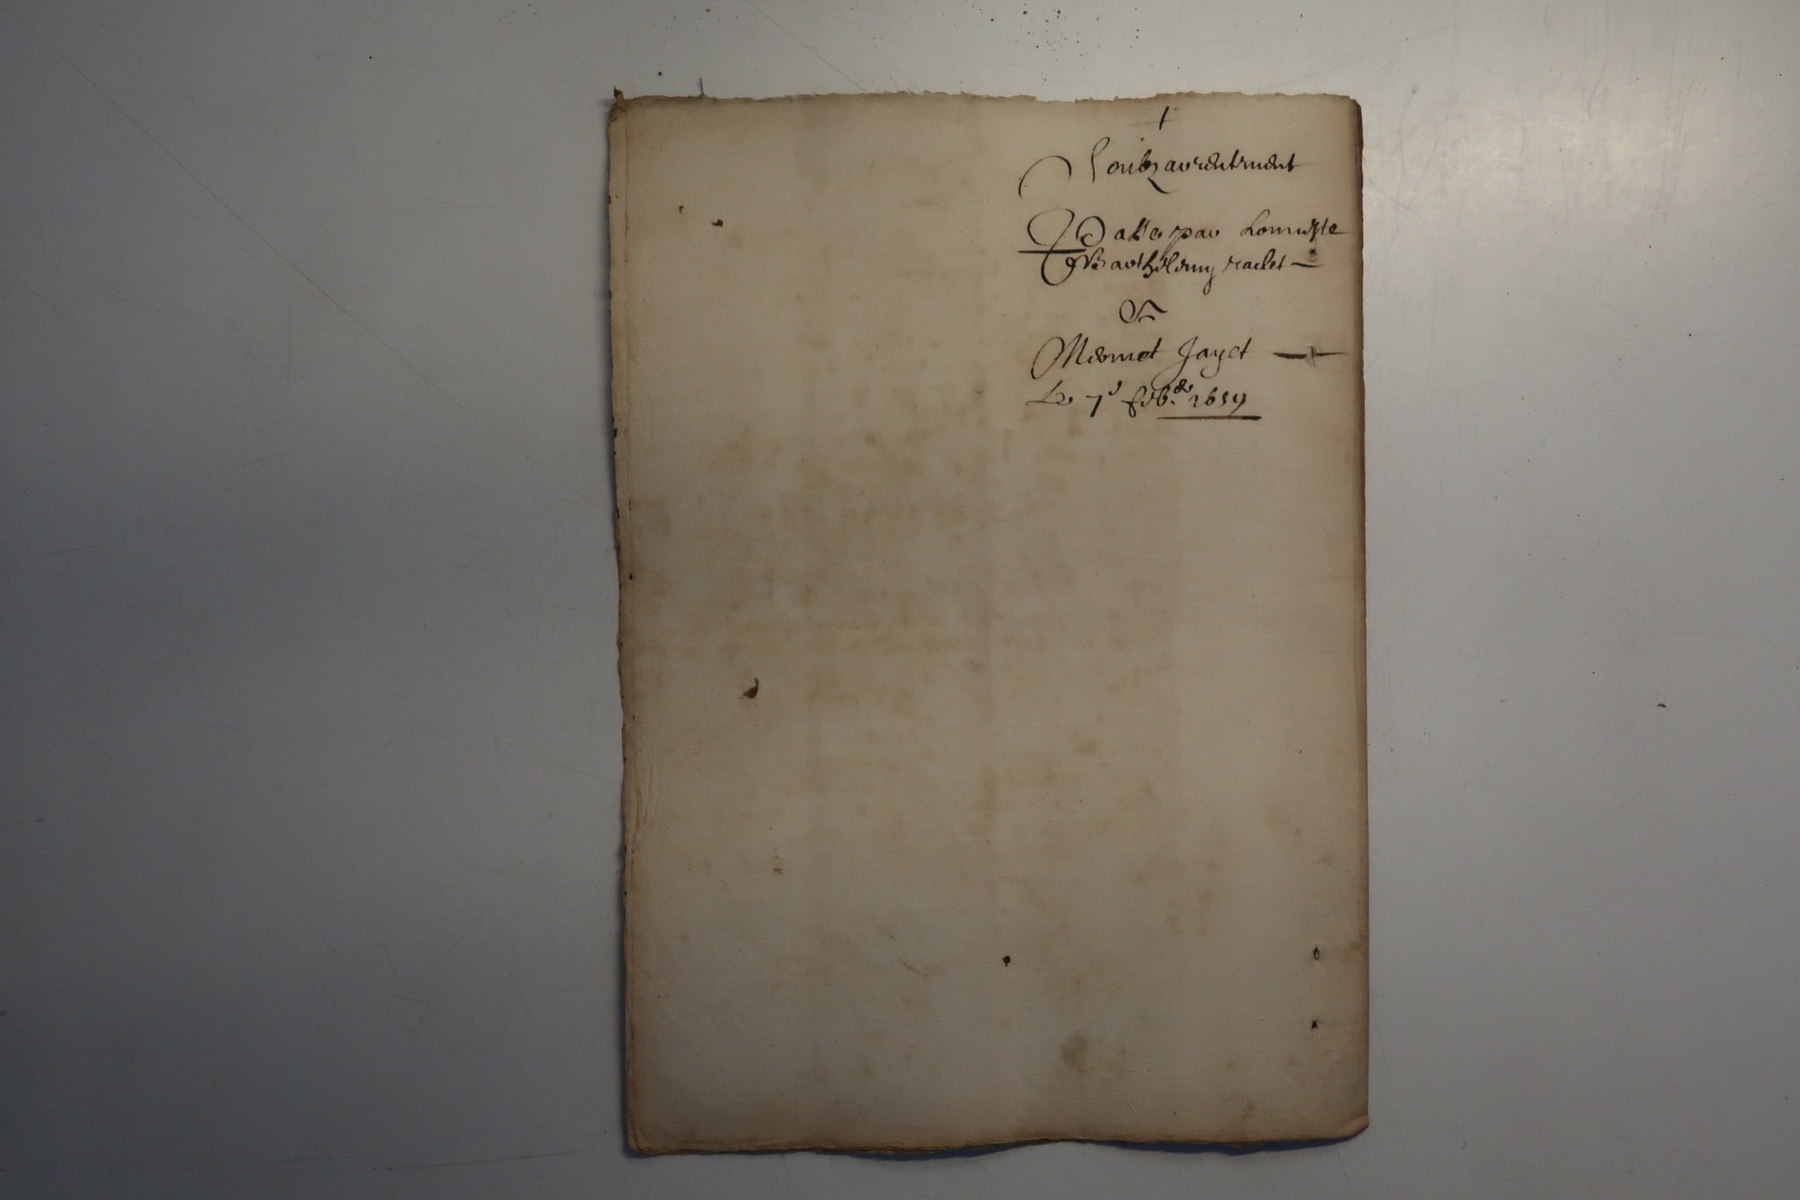 +
Soubz arrentement
Passe par honneste
Barthelemy raclet
A
Mermet Jayet
Le 7e feb.er 1659